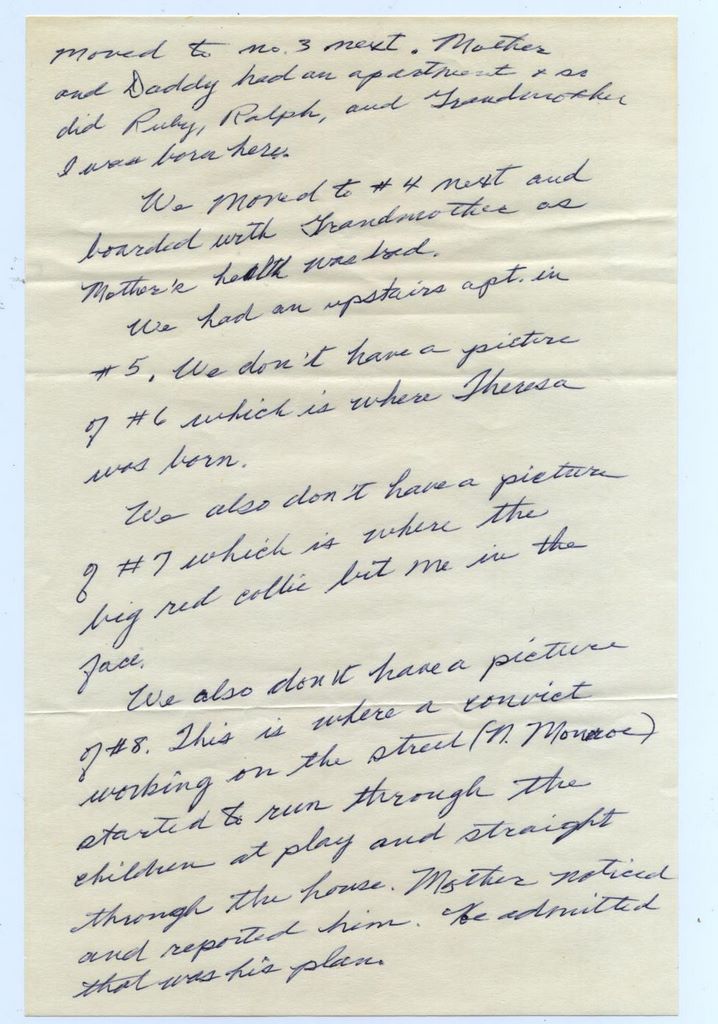 moved to no. 3 next. Mother
and Daddy had an apartment & so
did Ruby, Ralph, and Grandmother
I was born here.
We moved to #4 next and
boarded with Grandmother as
Mother's health was bad.
We had an upstairs apt. in
#5. We don't have a picture
of #6 which is where Theresa
was born.
We also don't have a picture
of #7 which is where the
big red collie bit me in the
face.
We also don't have a picture
of #8. This is where a convict
working on the street (N. Monroe)
started to run through the
children at play and straight
through the house. Mother noticed
and reported him. He admitted
that was his plan.